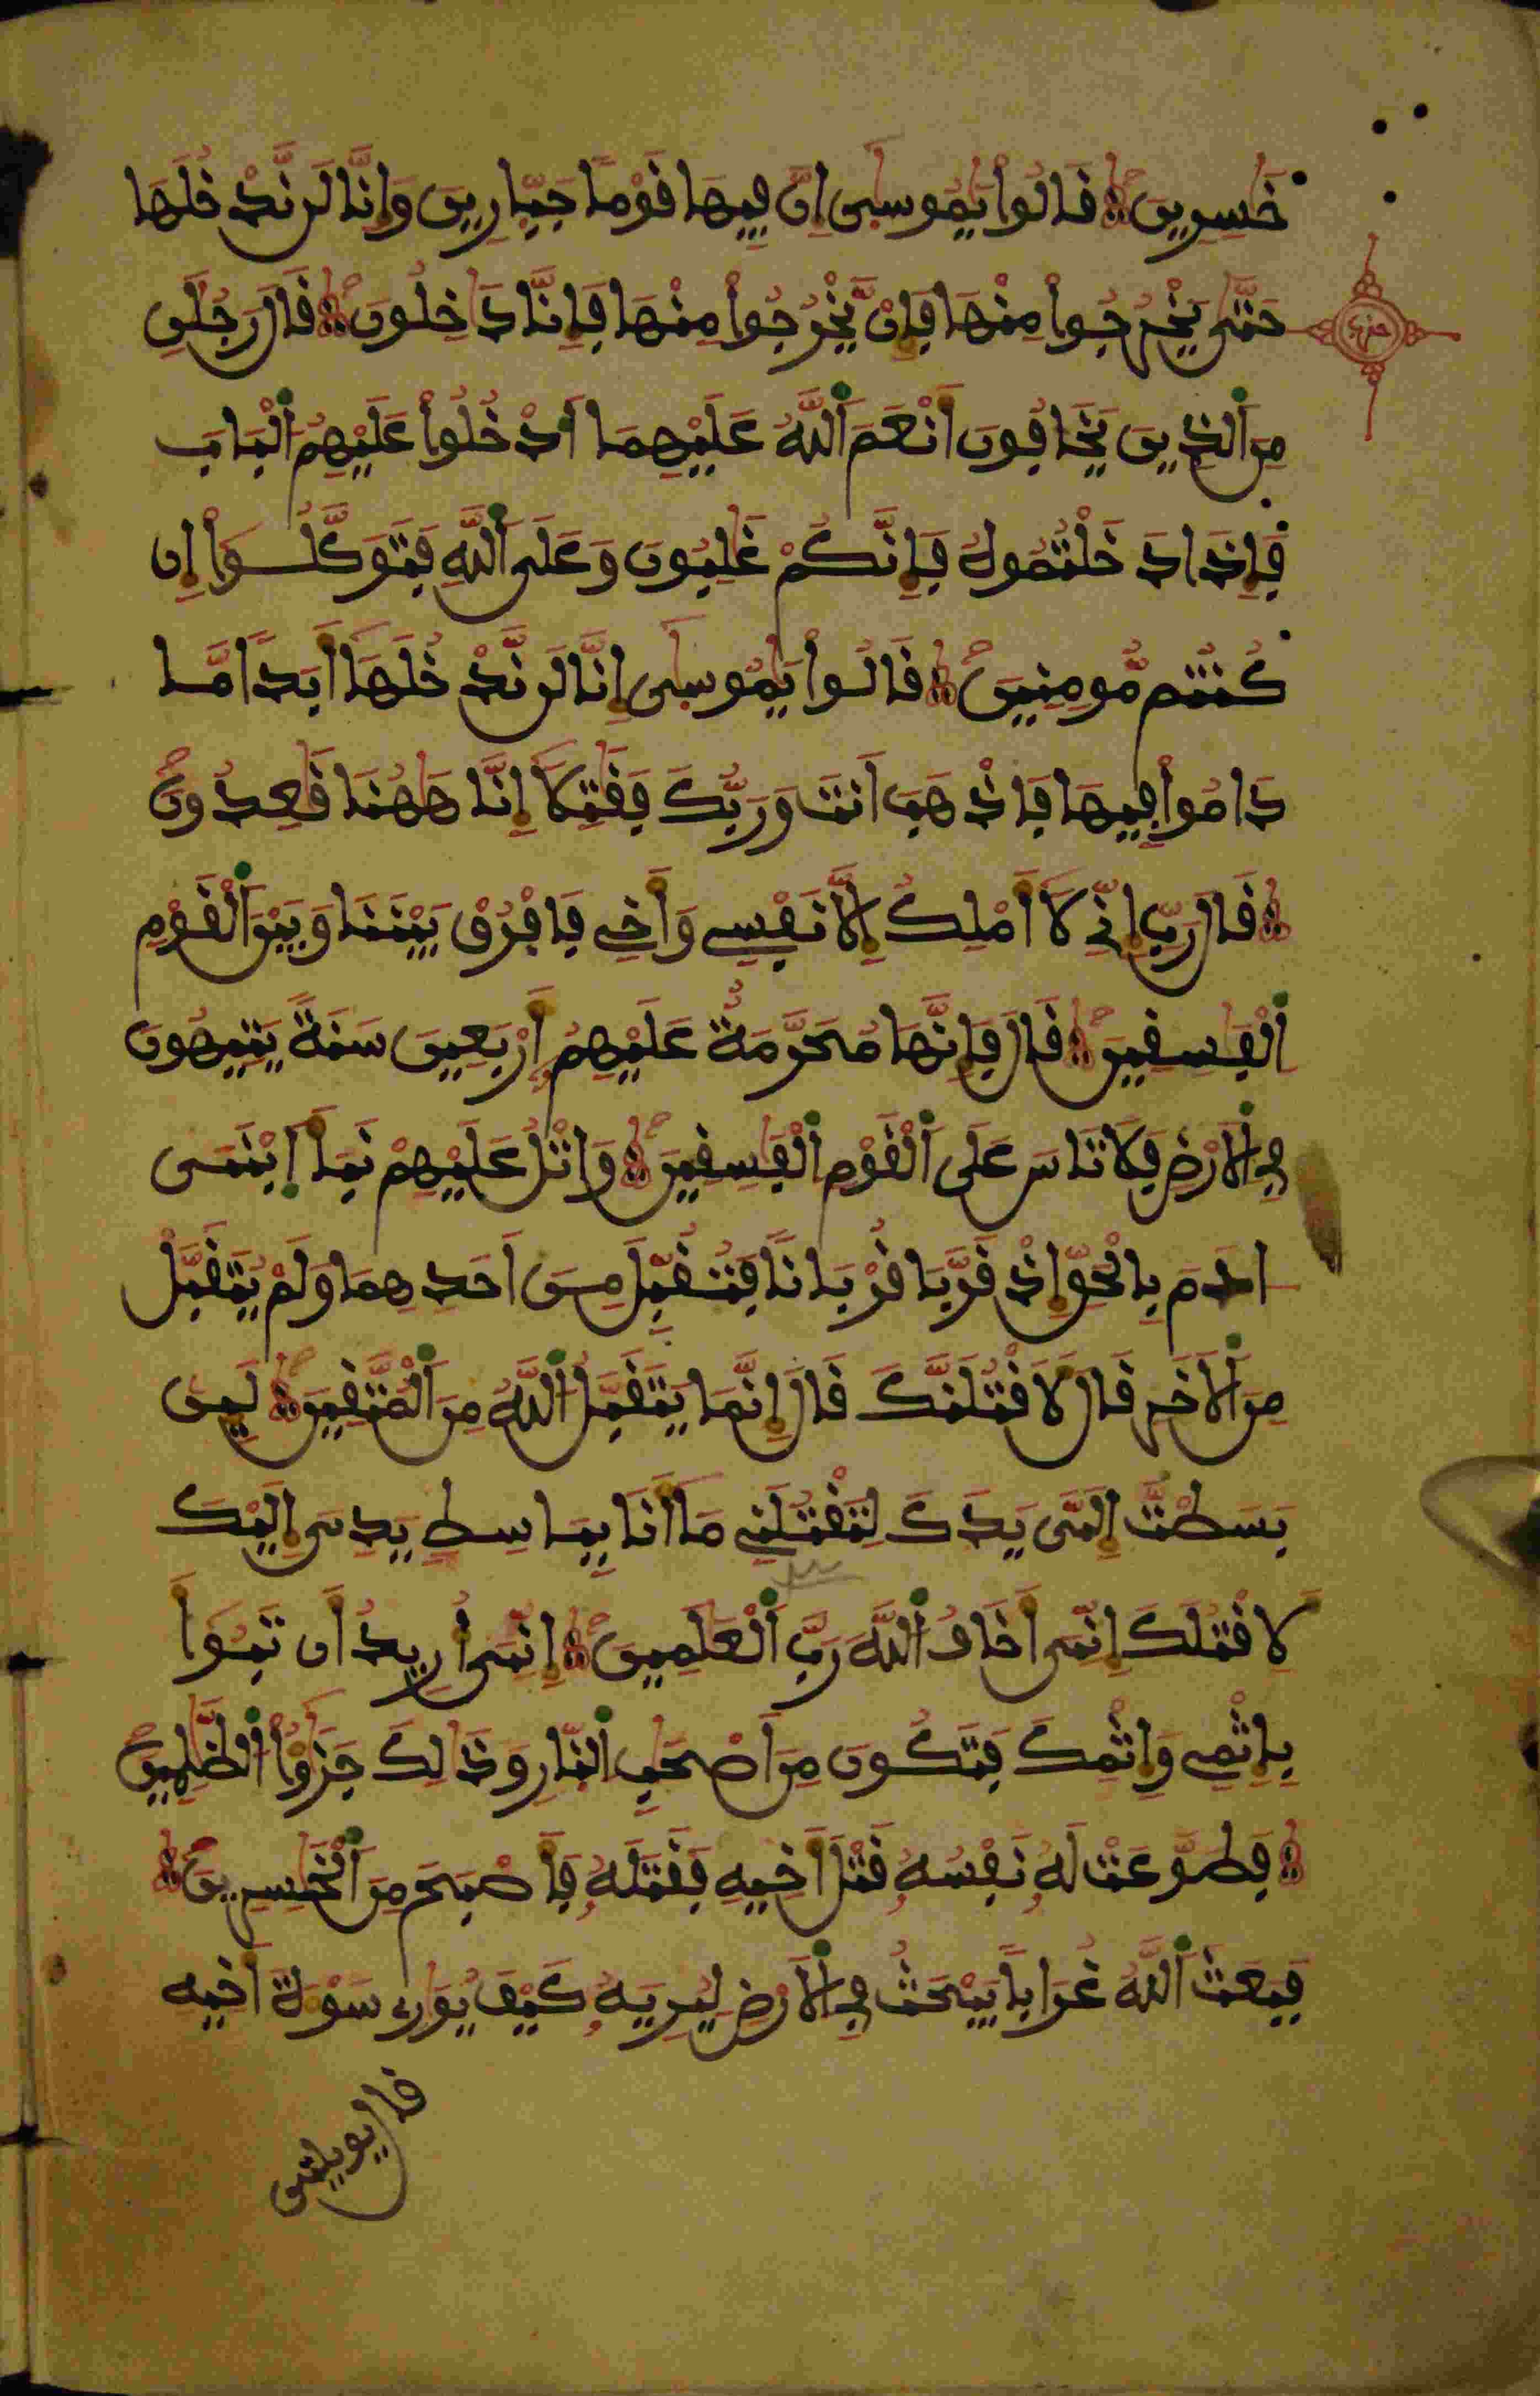 خَٰسِرِينَ قَالُواْ يَٰمُوسَىٰ إِنَّ فِيهَا قَوْماً جَبّ۪ارِينَ وَإِنَّا لَن نَّدْخُلَهَا
حَتَّىٰ يَخْرُجُواْ مِنْهَا فَإِنْ يَّخْرُجُواْ مِنْهَا فَإِنَّا دَٰخِلُونَ قَالَ رَجُلَٰنِ
مِنَ اَ۬لذِينَ يَخَافُونَ أَنْعَمَ اَ۬للَّهُ عَلَيْهِمَا اَ۟دْخُلُواْ عَلَيْهِمُ اُ۬لْبَابَ
فَإِذَا دَخَلْتُمُوهُ فَإِنَّكُمْ غَٰلِبُونَ وَعَلَى اَ۬للَّهِ فَتَوَكَّلُواْ إِن
كُنتُم مُّومِنِينَ قَالُواْ يَٰمُوسَىٰ إِنَّا لَن نَّدْخُلَهَا أَبَداً مَّا
دَامُواْ فِيهَا فَاذْهَبَ اَنتَ وَرَبُّكَ فَقَٰتِلَا إِنَّا هَٰهُنَا قَٰعِدُونَ
قَالَ رَبِّ إِنِّي لَا أَمْلِكُ إِلَّا نَفْسِي وَأَخِي فَافْرُقْ بَيْنَنَا وَبَيْنَ اَ۬لْقَوْمِ
اِ۬لْفَٰسِقِينَ قَالَ فَإِنَّهَا مُحَرَّمَةٌ عَلَيْهِمُ أَرْبَعِينَ سَنَةً يَتِيهُونَ
فِي اِ۬لَارْضِ فَلَا تَاسَ عَلَى اَ۬لْقَوْمِ اِ۬لْفَٰسِقِينَ وَاتْلُ عَلَيْهِمْ نَبَأَ اَ۪بْنَيَ
اَدَمَ بِالْحَقِّ إِذْ قَرَّبَا قُرْبَاناً فَتُقُبِّلَ مِنَ اَحَدِهِمَا وَلَمْ يُتَقَبَّلْ
مِنَ اَ۬لَاخَرِ قَالَ لَأَقْتُلَنَّكَ قَالَ إِنَّمَا يَتَقَبَّلُ اُ۬للَّهُ مِنَ اَ۬لْمُتَّقِينَ لَئِن
بَسَطتَ إِلَيَّ يَدَكَ لِتَقْتُلَنِي مَا أَنَا بِبَاسِطٍ يَدِيَ إِلَيْكَ
لِأَقْتُلَكَ إِنِّيَ أَخَافُ اُ۬للَّهَ رَبَّ اَ۬لْعَٰلَمِينَ إِنِّيَ أُرِيدُ أَن تَبُوأَ
بِإِثْمِي وَإِثْمِكَ فَتَكُونَ مِنَ اَصْحَٰبِ اِ۬لنّ۪ارِ وَذَٰلِكَ جَزَٰؤُاْ اُ۬لظَّٰلِمِينَ
فَطَوَّعَتْ لَهُۥ نَفْسُهُۥ قَتْلَ أَخِيهِ فَقَتَلَهُۥ فَأَصْبَحَ مِنَ اَ۬لْخَٰسِرِينَ
فَبَعَثَ اَ۬للَّهُ غُرَاباً يَبْحَثُ فِي اِ۬لَارْضِ لِيُرِيَهُۥ كَيْفَ يُوَٰرِي سَوْءَةَ أَخِيهِ
قال يويلتى
حزب